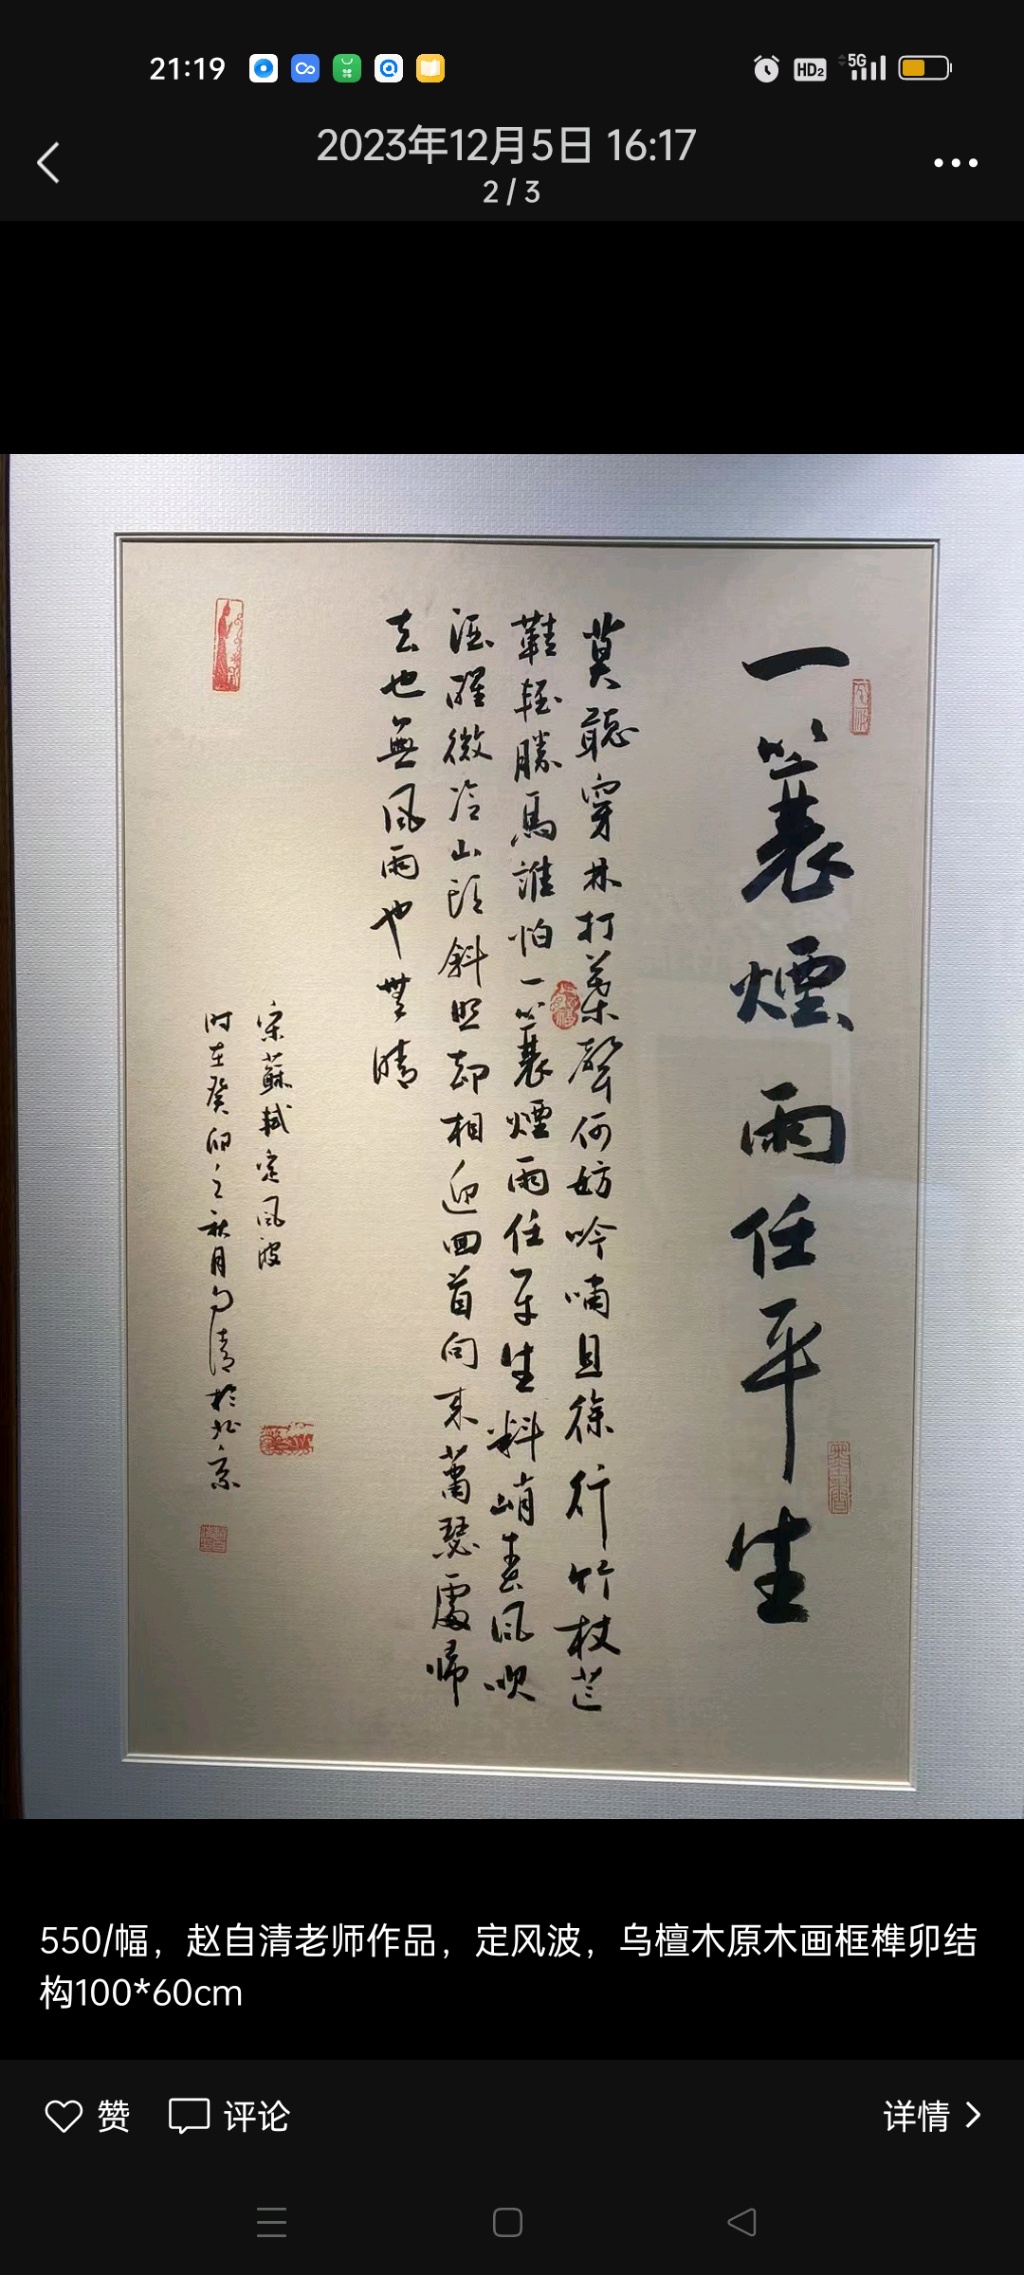 21:19
HD2 5G
2023年12月5日 16:17
2 / 3
一蓑煙雨任平生
莫聽穿林打葉聲何妨吟嘯且徐行竹杖芒
鞋輕勝馬誰怕一蓑煙雨任平生料峭春風吹
酒醒微冷山頭斜照却相迎回首向来蕭瑟處歸
去也無風雨也無晴
宋蘇軾定風波
时在癸卯之秋月自清於北京
550/幅，赵自清老师作品，定风波，乌檀木原木画框榫卯结
构100*60cm
赞 评论 详情